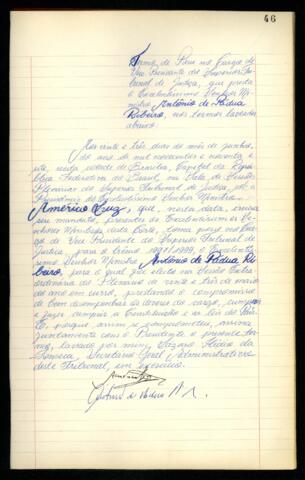 46
Termo de Posse no Cargo de
Vice-Presidente do Superior Tri-
bunal de Justiça, que presta
o Excelentíssimo Senhor Mi-
nistro Antônio de Pádua
Ribeiro, nos termos lavrados
abaixo.
Aos vinte e três dias do mês de junho,
do ano de mil novecentos e noventa e
sete, nesta cidade de Brasília, Capital da Repú-
blica Federativa do Brasil, em Sala de Sessões
Plenárias do Superior Tribunal de Justiça, sob a
Presidência do Excelentíssimo Senhor Ministro
Américo Luz, que, nesta data, encerra
seu mandato, presentes os Excelentíssimos Se-
nhores Ministros desta Corte, toma posse no Car-
go de Vice-Presidente do Superior Tribunal de
Justiça, para o biênio 1997/1999, o Excelentís-
simo Senhor Ministro Antônio de Pádua Ri-
beiro, para o qual foi eleito na Sessão Extra-
ordinária do Plenário de vinte e três de maio
do ano em curso, prestando o compromisso
de bem desempenhar os deveres do cargo, cumprir
e fazer cumprir a Constituição e as leis do País.
E, porque assim se comprometeu, assina
juntamente com o Presidente o presente ter-
mo, lavrado por mim,
Secretário-Geral
deste Tribunal, em exercício.
Antônio de Pádua R.